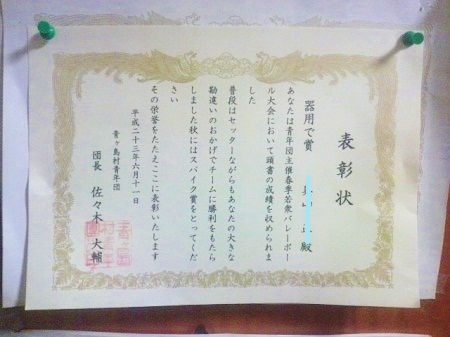 表彰状
器用で賞
殿
あなたは青年団主催春季若衆バレーボー
ル大会において頭書の成績を収められま
した
普段はセッターながらもあなたの大きな
勘違いのおかげでチームに勝利をもたら
しました秋にはスパイク賞をとってくだ
さい
その栄誉をたたえここに表彰いたします
平成二十三年六月十一日
青ヶ島村青年団
団長 佐々木 大輔